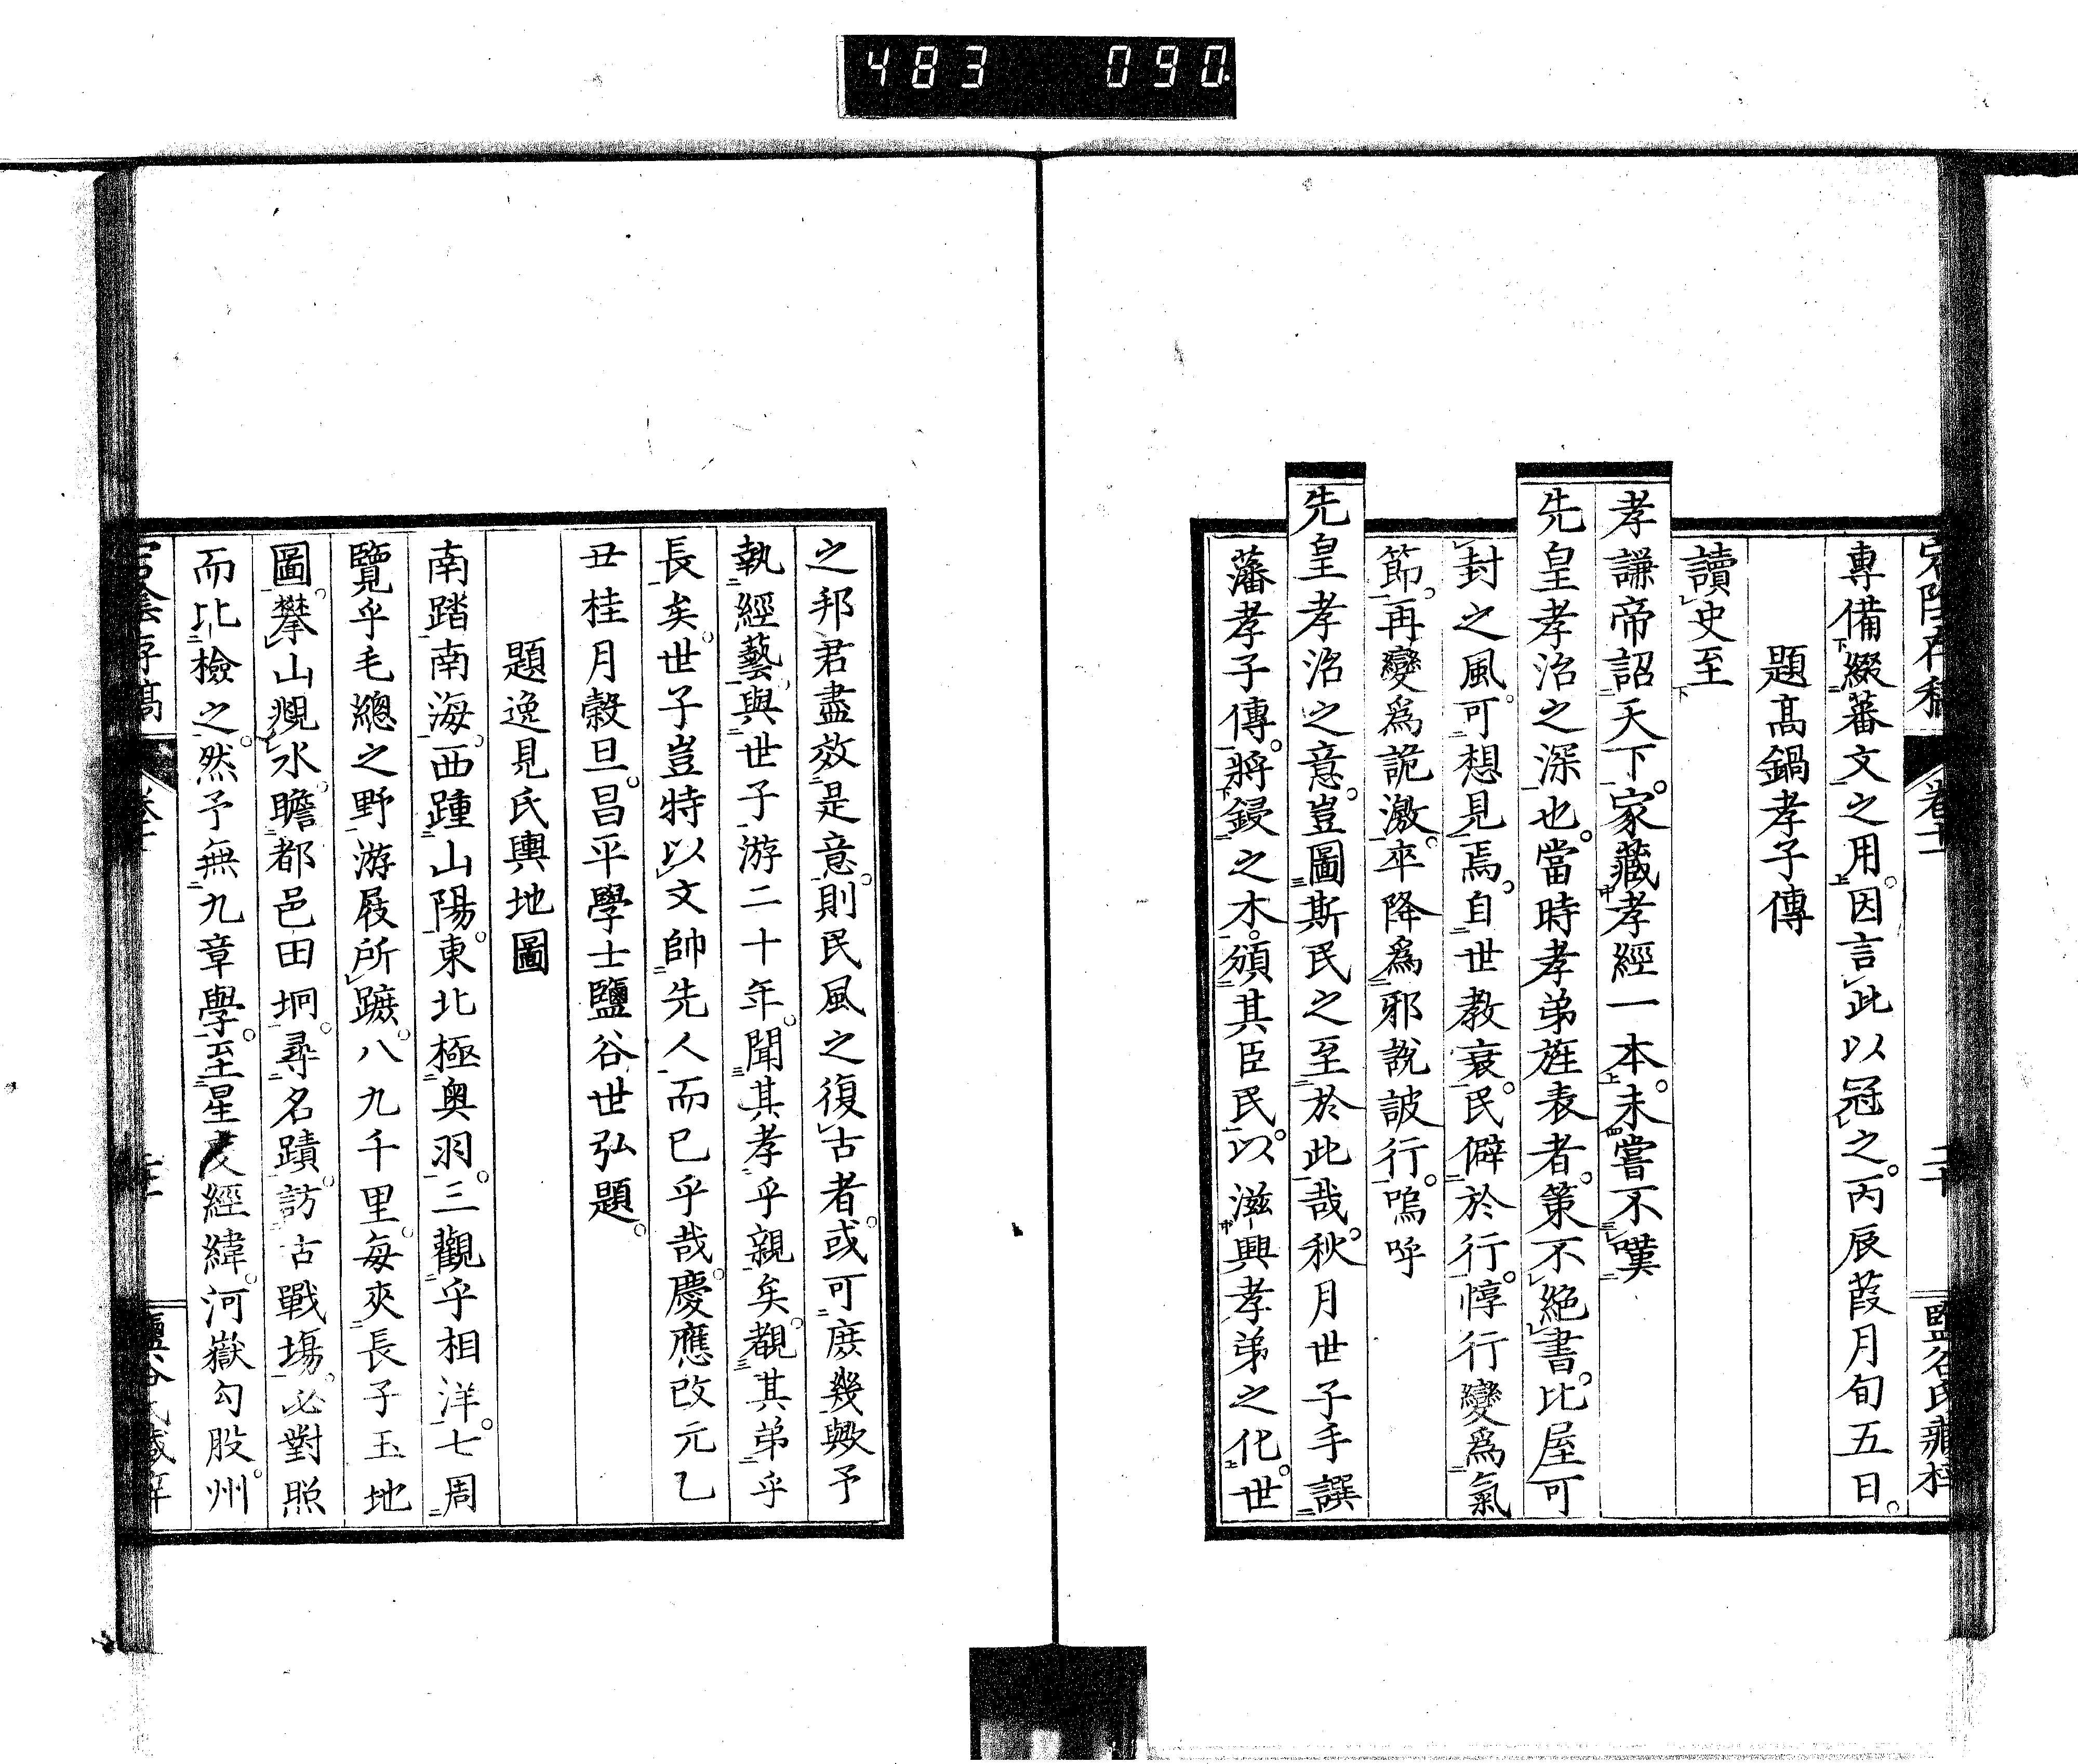 483 090
專備綴蕃文之用。因言此以冠之。丙辰葭月旬五日。
題高鍋孝子傳
讀史至
孝謙帝詔天下。家藏孝經一本。未嘗不嘆
先皇孝治之深也。當時孝弟旌表者。策不絕書。比屋可
封之風。可想見焉。自世教衰。民僻於行。悖行變爲氣
節。再變爲詭激。卒降爲邪說詖行。嗚呼
先皇孝治之意。豈圖斯民之至於此哉。秋月世子手譔
藩孝子傳。將鋟之木。頒其臣民。以滋興孝弟之化。世
之邦君盡效是意。則民風之復古者。或可庶幾歟予
執經藝。與世子游二十年。聞其孝乎親矣。覩其弟乎
長矣。世子豈特以文帥先人而已乎哉。慶應改元乙
丑桂月穀旦。昌平學士鹽谷世弘題。
題逸見氏輿地圖
南踏南海。西踵山陽。東北極奧羽。三觀乎相洋。七周
覽乎毛總之野。游屐所蹠。八九千里。每夾長子玉地
圖。攀山覘水。瞻都邑田坰。尋名蹟。訪古戰場。必對照
而比檢之。然予無九章學。至星度經緯。河嶽勾股。州